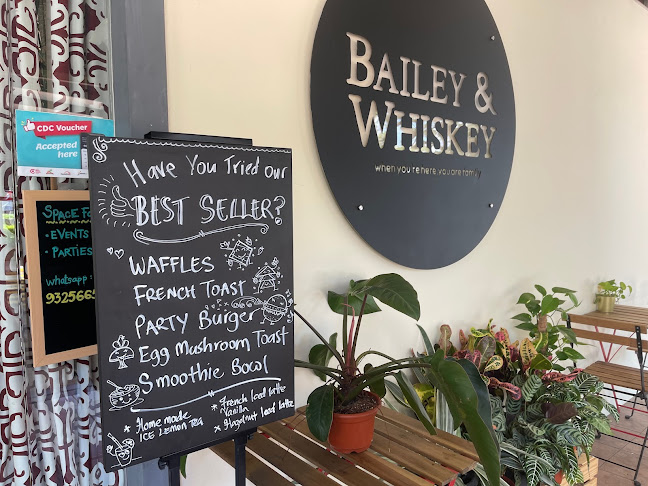 BAILEY &
WHISKEY
when you're here, you are family
CDC Voucher
Accepted
here
SPACE FO
• EVENTS
• PARTIES
whatsapp :
9325665
Have You Tried our
BEST SELLER?
WAFFLES
FRENCH TOAST
PARTY Burger
Egg Mushroom Toast
Smoothie Bowl
* Home made
ICE LEMON TEA
* French Iced latte
Vanilla
* Hazelnut Iced latte